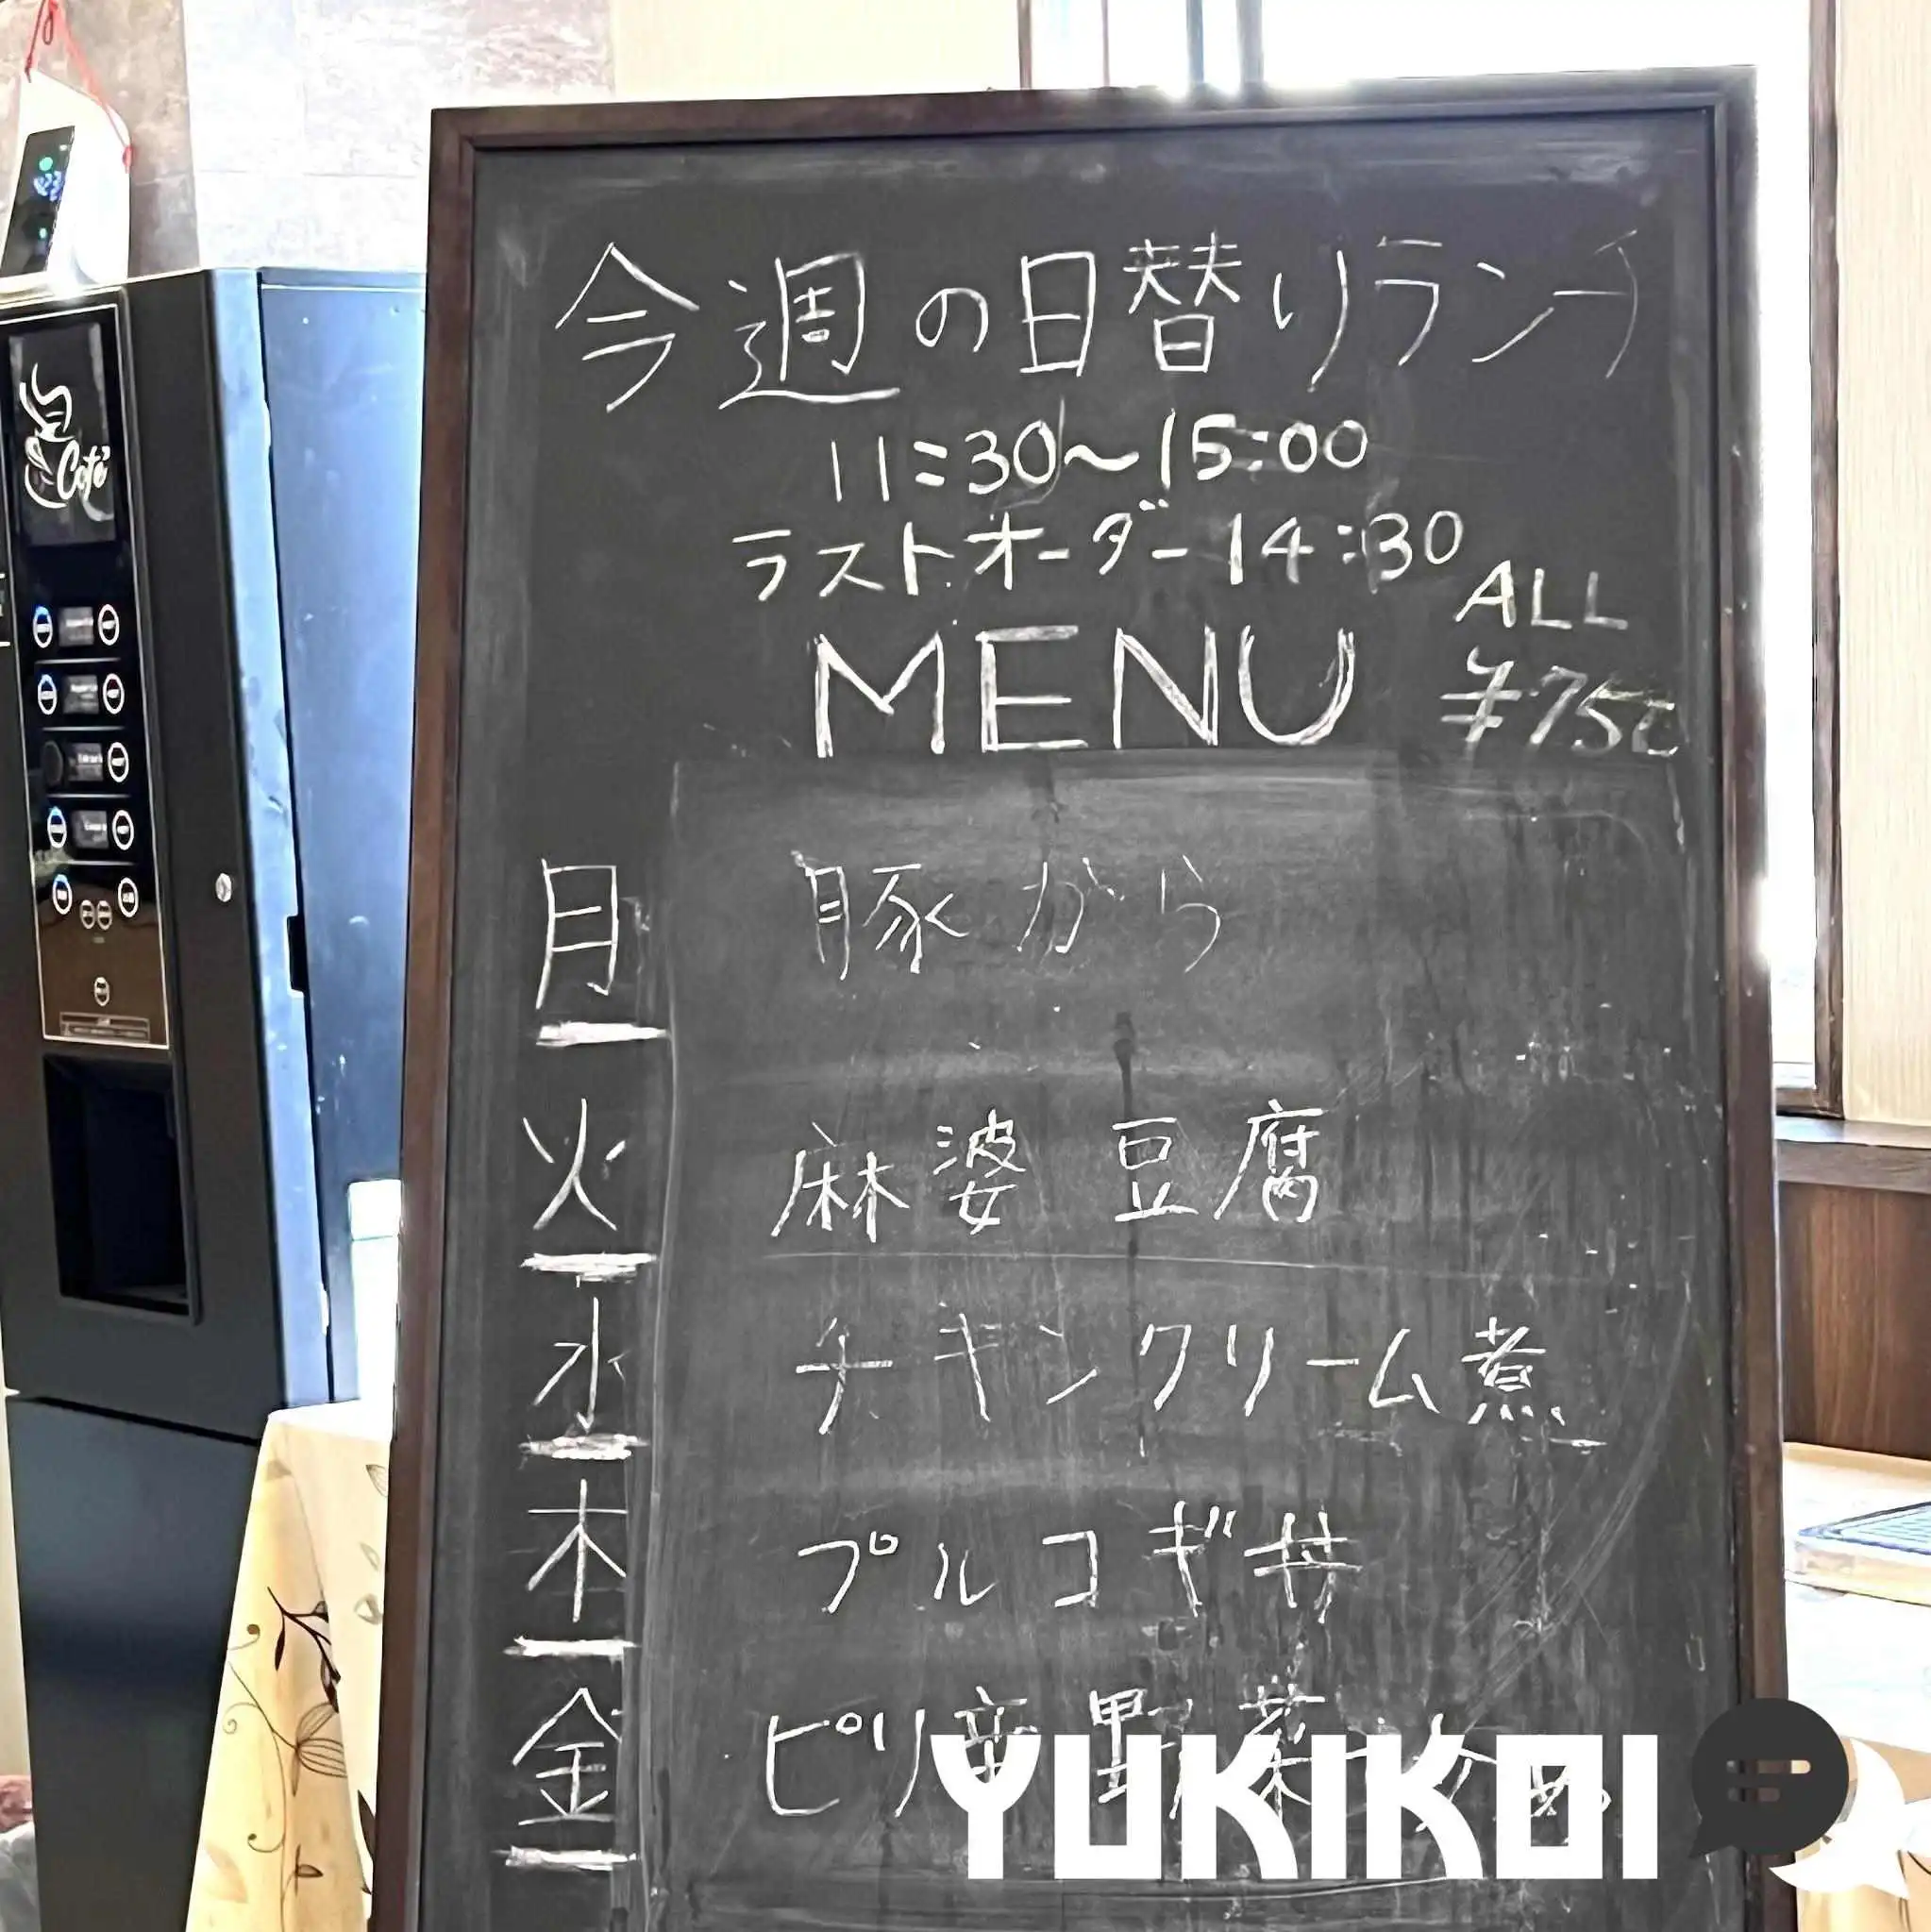 今週の日替りランチ
11:30〜15:00
ラストオーダー14:30
ALL
MENU
¥750
月 豚から
火 麻婆豆腐
水 チキンクリーム煮
木 プルコギ丼
金 ピリ辛野菜
YUKIKOI
Café